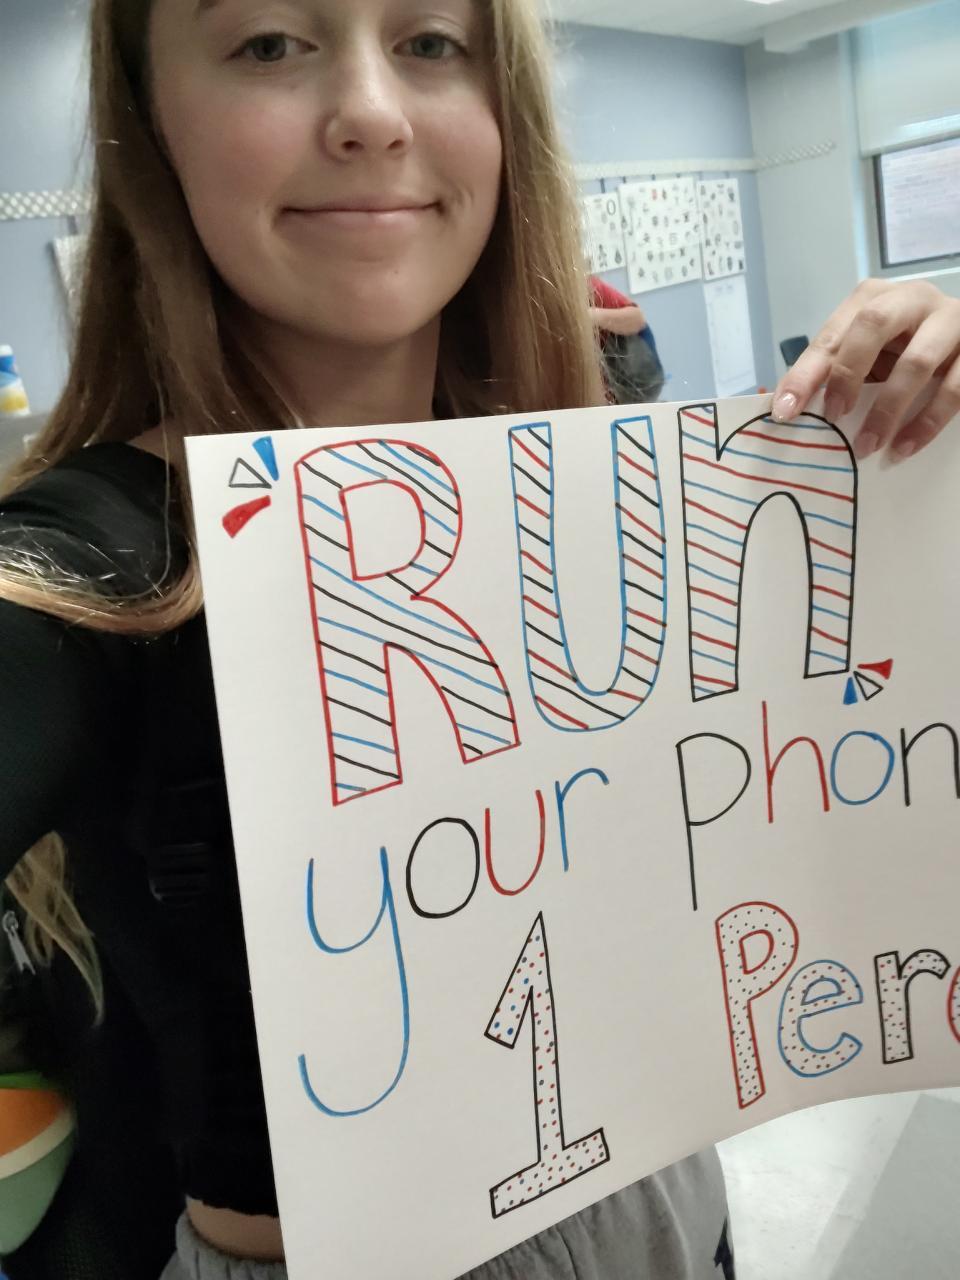 RUn
your phon
1 Perc